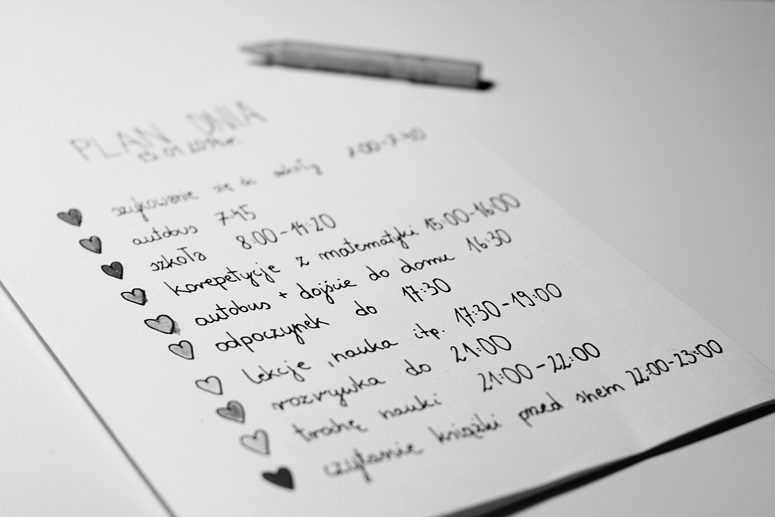 PLAN DNIA
15.01.2014r.
szykowanie się do szkoły 7:00-7:40
autobus 7:45
szkoła 8:00-14:20
korepetycje z matematyki 15:00-16:00
autobus + dojście do domu 16:30
odpoczynek do 17:30
lekcje, nauka itp. 17:30-19:00
rozrywka do 21:00
trochę nauki 21:00-22:00
czytanie książki przed snem 22:00-23:00